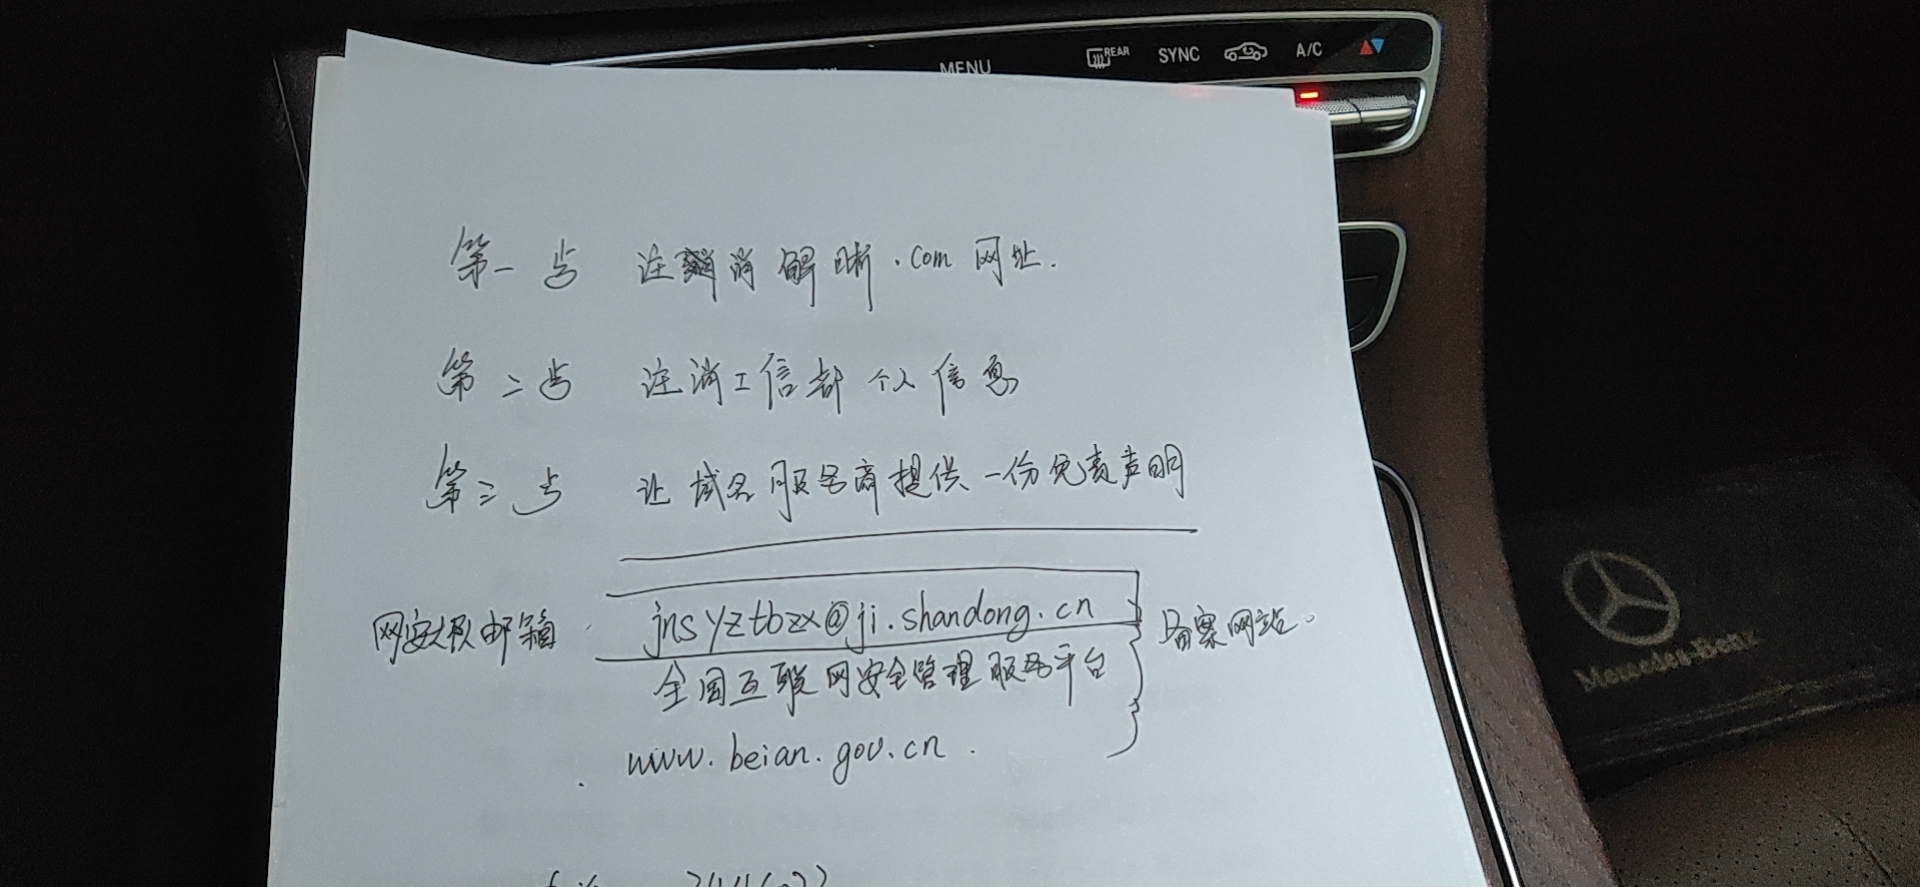 MENU REAR SYNC A/C
第一步 注消解晰.com网址.
第二步 注消工信部个人信息
第三步 让域名服务商提供一份免责声明
网安大队邮箱 jnsyztbzx@ji.shandong.cn 备案网站。
全国互联网安全管理服务平台
www.beian.gov.cn.
Mercedes-Benz